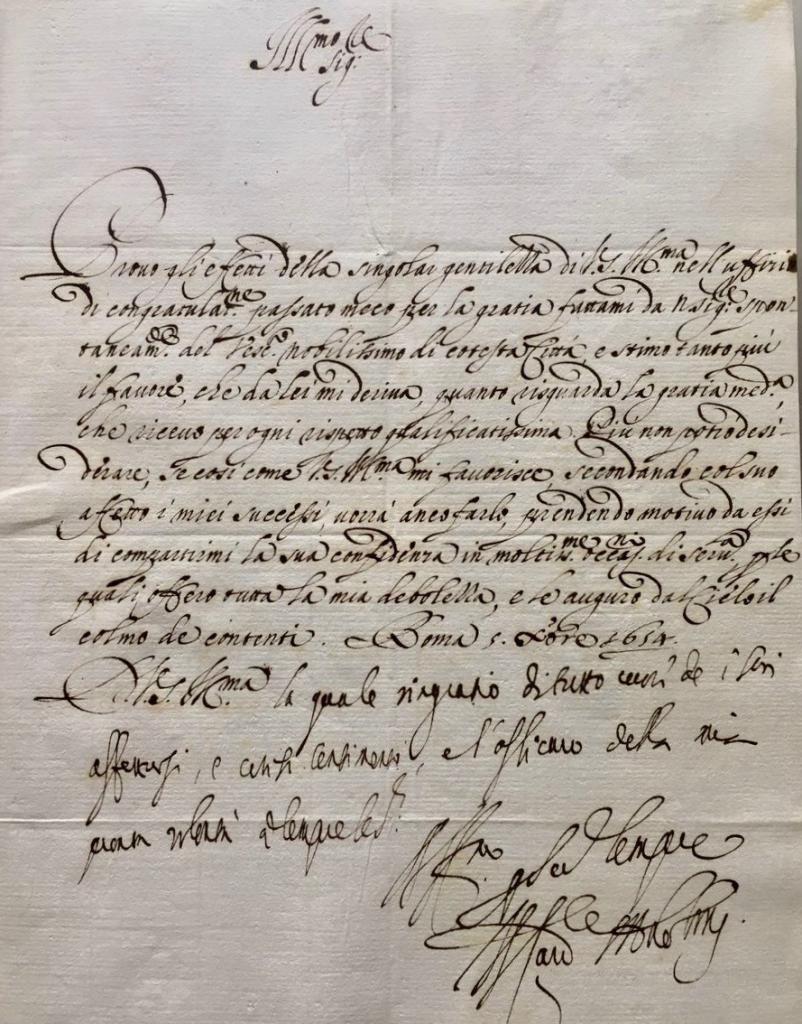 Ill.mo
Sig.
Provo gli effetti della singolar gentilezza di V.S. Ill.ma nell'uffitio
di congratulat.ne passato meco per la gratia fattami da N. Sig.re spon-
taneam.e del Vesc.do nobilissimo di cotesta Città, e stimo tanto più
il favore, che da lei mi deriva, quanto risguarda la gratia med.a,
che ricevo per ogni rispetto qualificatissima. Più non potrò desi-
derare, se così come V.S. Ill.ma mi favorisce, secondando col suo
affetto i miei successi, vorrà anco farlo, prendendo motivo da essi
di compartirmi la sua confidenza in moltiss.me occas.ni di serv.a, p le
quali offero tutta la mia debolezza, e le auguro dal Cielo il
colmo de contenti. Roma 5. Xbre 1654.
D. V.S. Ill.ma la quale ringratio di tutto cuore de i suoi
affettuosi, e, e l'assicuro della mia
pronta volontà
Aff.mo sempre